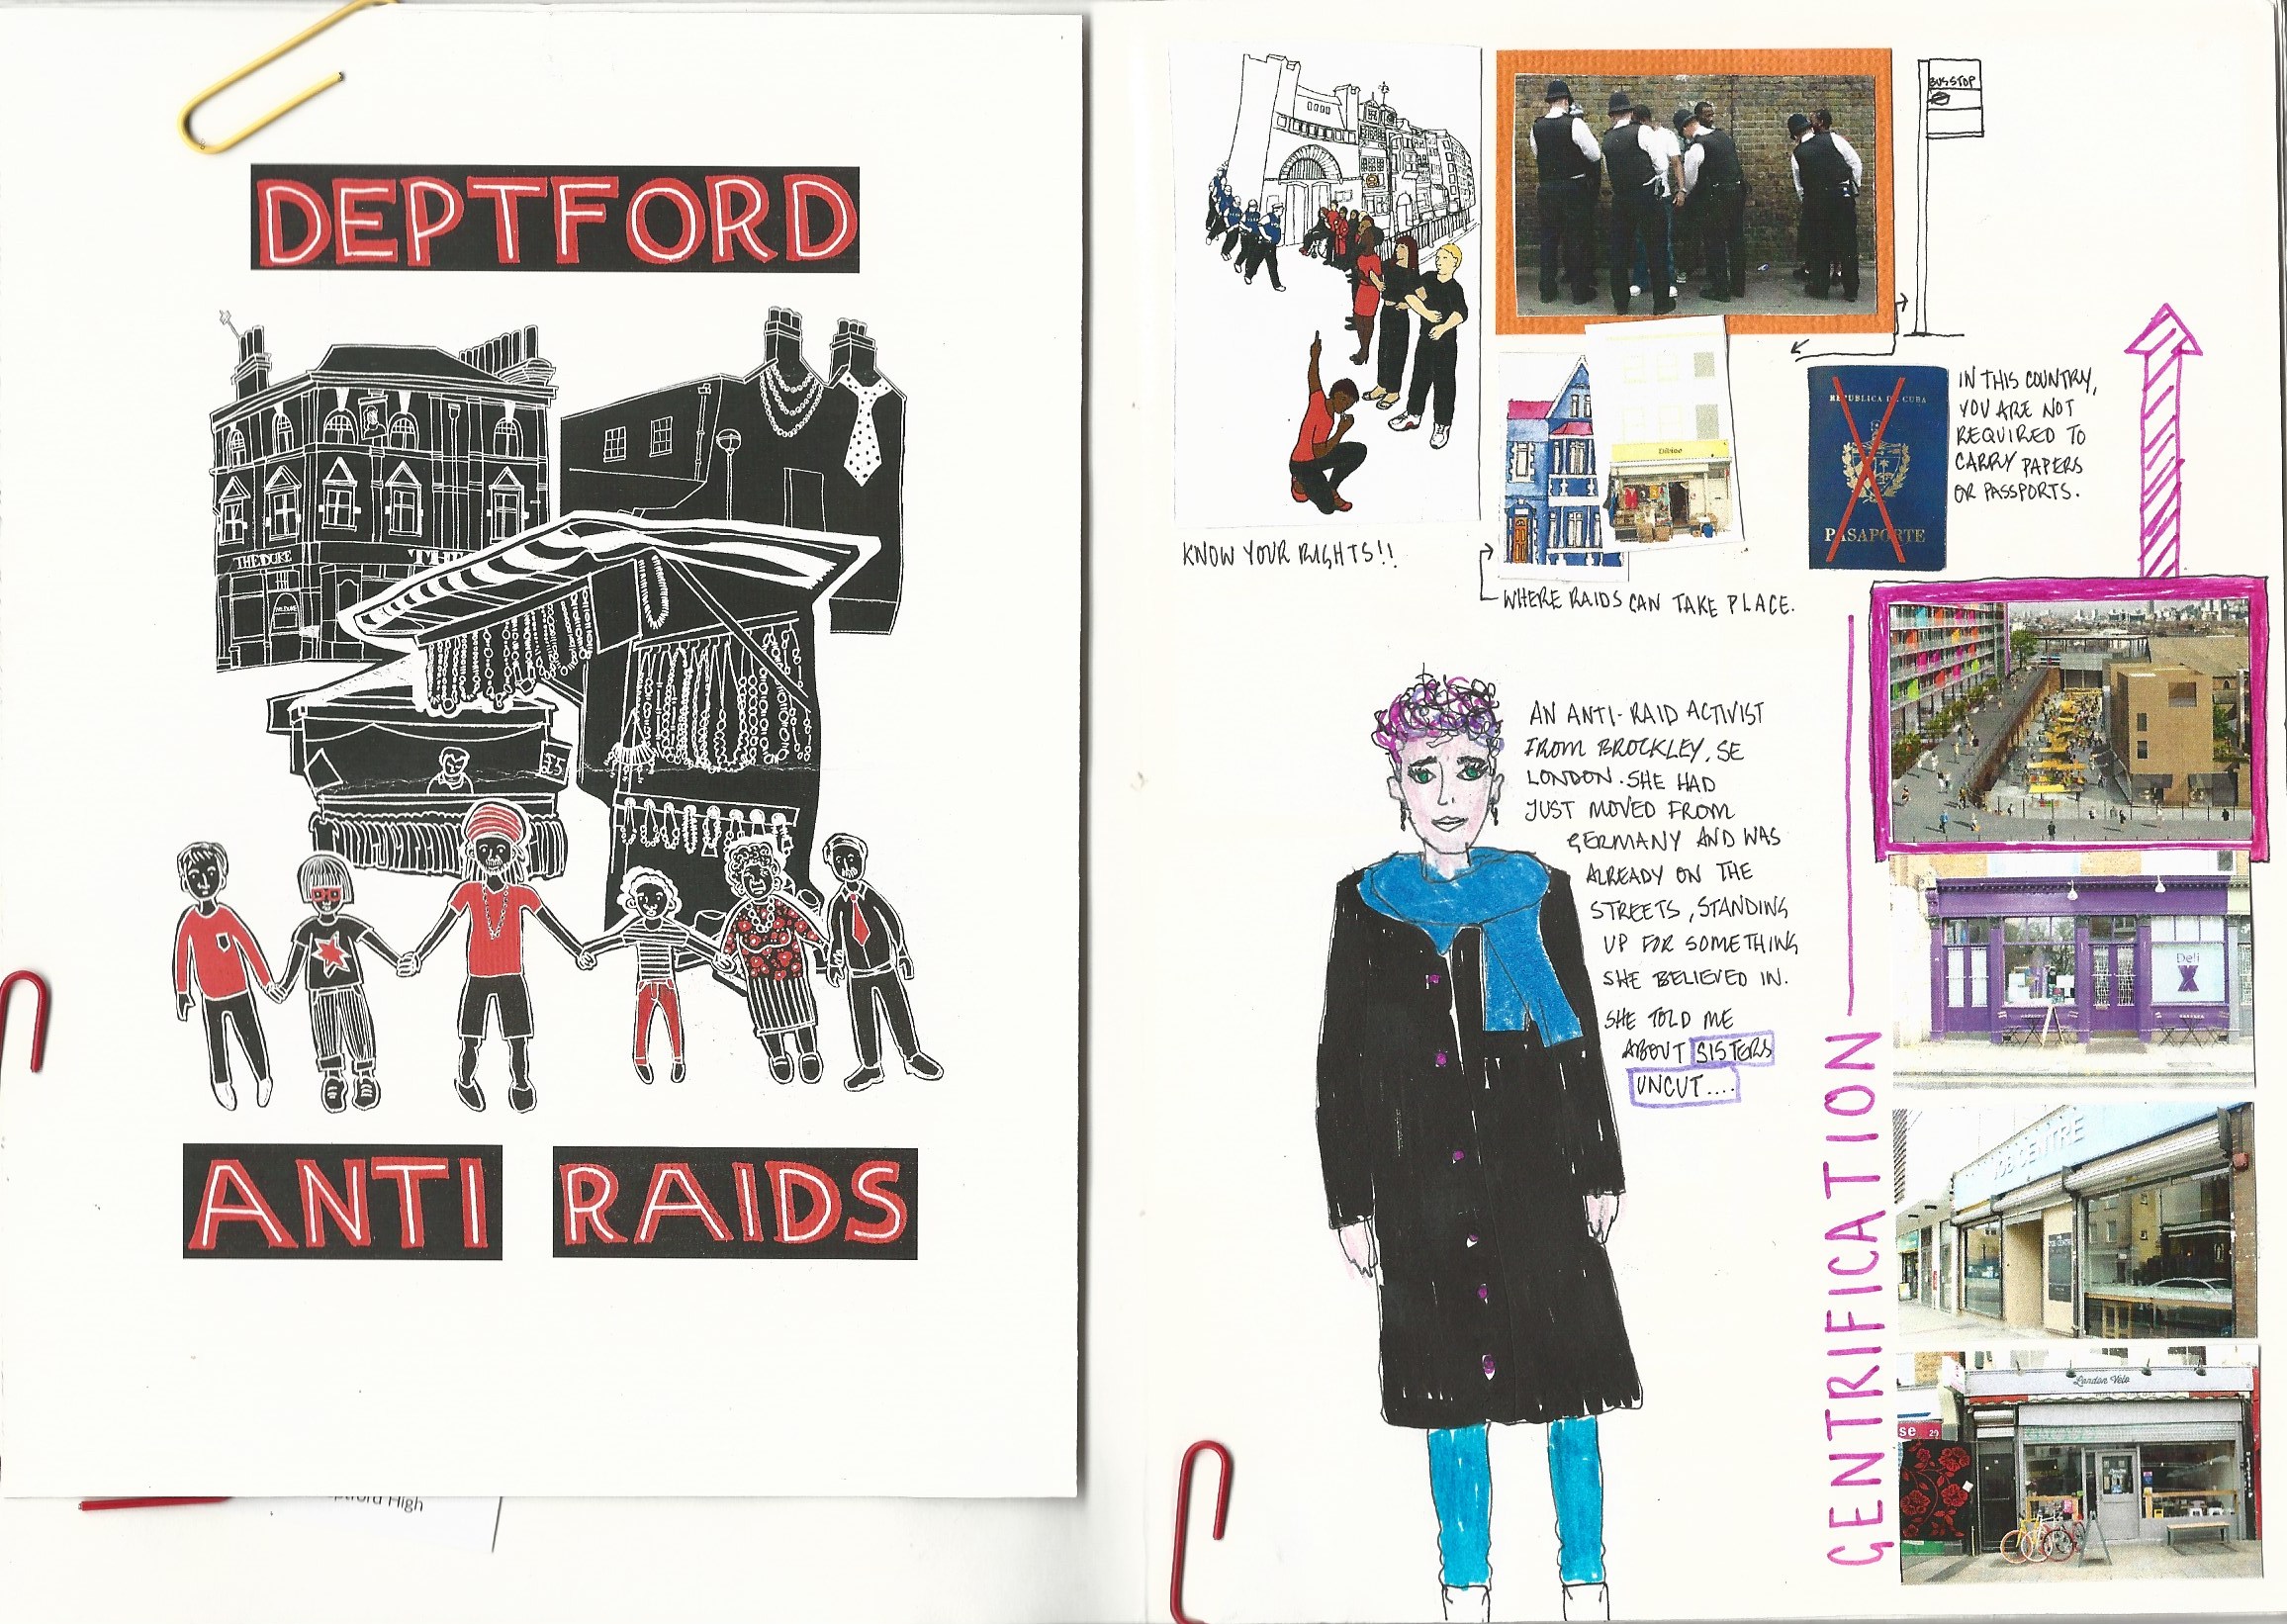 DEPTFORD
THE DUKE
THE
THE DUKE
£5
ANTI RAIDS
ptford High
KNOW YOUR RIGHTS!!
BUS STOP
WHERE RAIDS CAN TAKE PLACE.
REPUBLICA DE CUBA
PASAPORTE
IN THIS COUNTRY,
YOU ARE NOT
REQUIRED TO
CARRY PAPERS
OR PASSPORTS.
AN ANTI-RAID ACTIVIST
FROM BROCKLEY, SE
LONDON. SHE HAD
JUST MOVED FROM
GERMANY AND WAS
ALREADY ON THE
STREETS, STANDING
UP FOR SOMETHING
SHE BELIEVED IN.
SHE TOLD ME
ABOUT SISTERS
UNCUT....
GENTRIFICATION
Deli
X
JOB CENTRE
London Velo
se 29